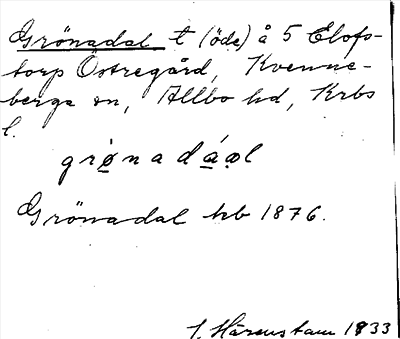 Grönadal t (öde) å 5 Elofs-
torp Östregård, Kvenne-
berga sn, Allbo hd, Krbs
l.
grø̀nadáəl
Grönadal hb 1876.
J. Härenstam 1933